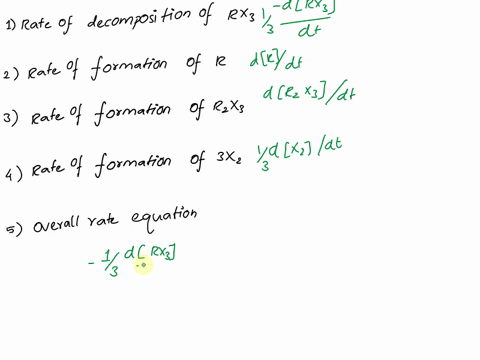 1) Rate of decomposition of RX3 1/3 -d[RX3]/dt
2) Rate of formation of R d[R]/dt
3) Rate of formation of R2X3 d[R2X3]/dt
4) Rate of formation of 3X2 1/3 d[X2]/dt
5) Overall rate equation
- 1/3 d[RX3]